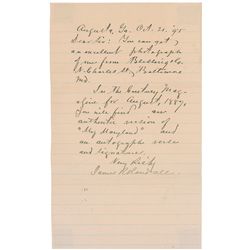 Augusta, Ga. Oct. 21, '95
Dear Sir: You can get
an excellent photograph
of me from Blessing & Co.
N. Charles St., Baltimore
Md.
In the Century Mag-
azine for August, 1887,
you will find an
authentic version of
"My Maryland" and
an autograph verse
and signature.
Very Truly
James R. Randall